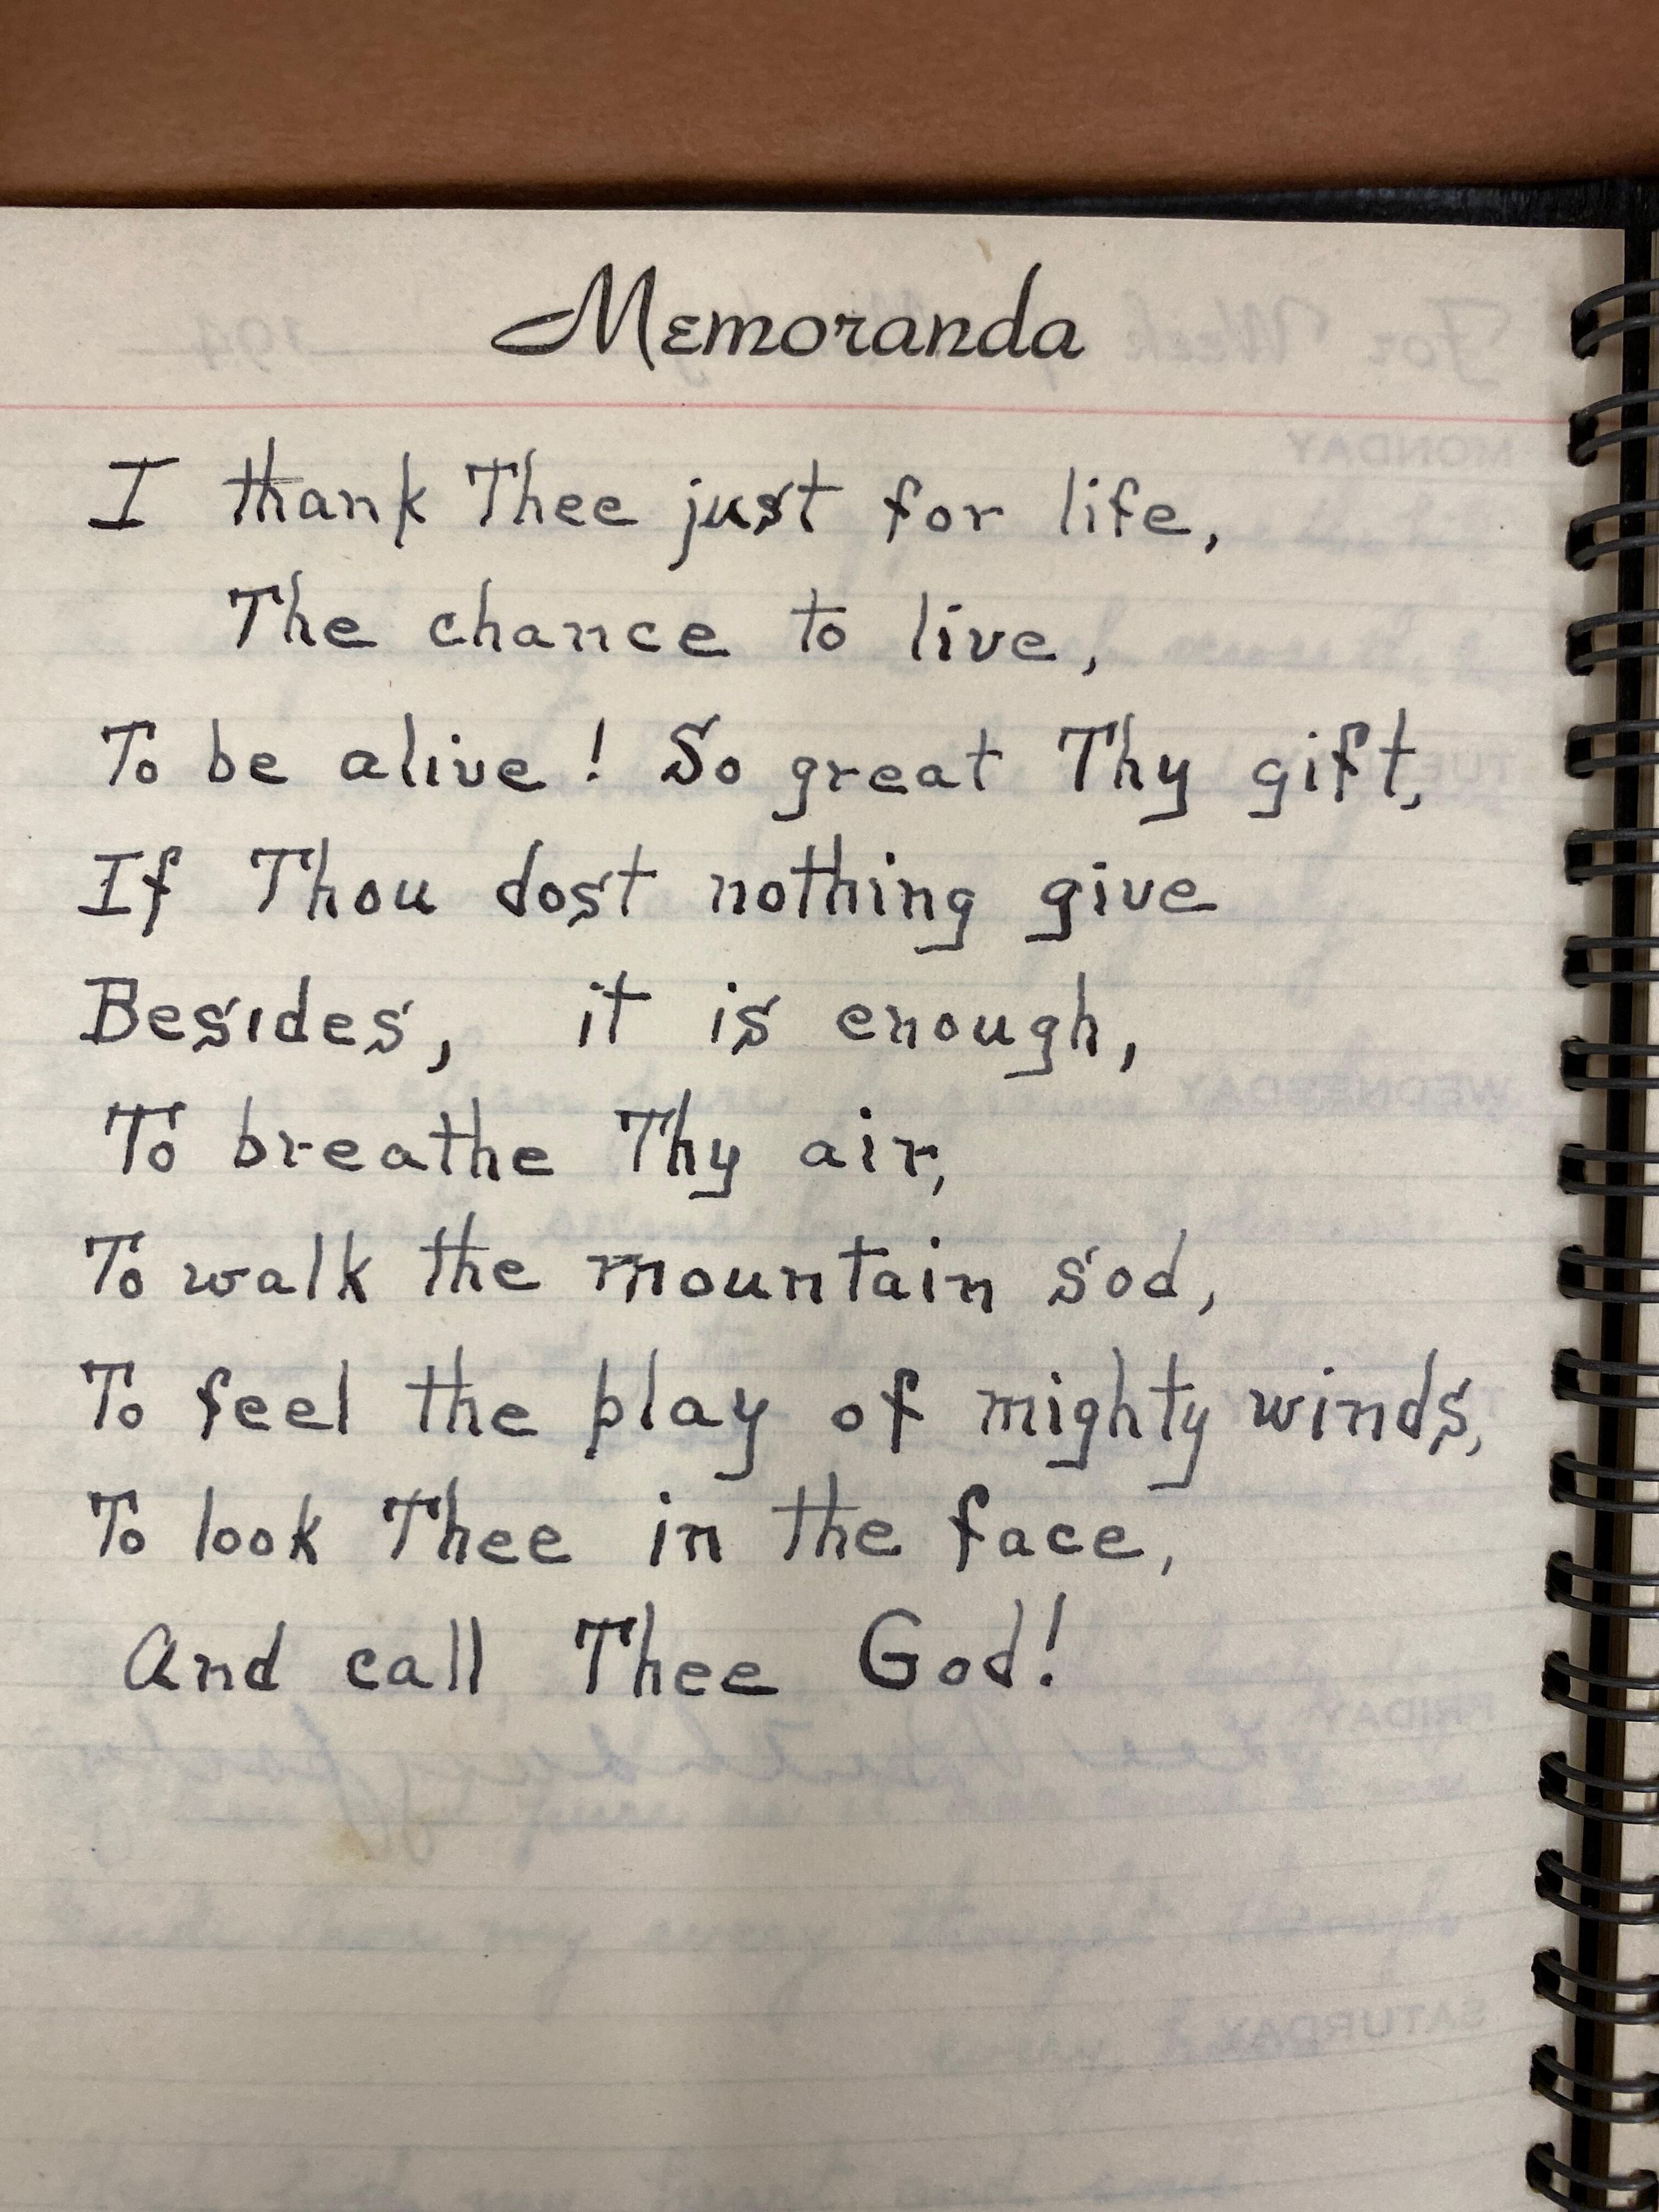 Memoranda
I thank Thee just for life,
The chance to live,
To be alive! So great Thy gift,
If Thou dost nothing give
Besides, it is enough,
To breathe Thy air,
To walk the mountain sod,
To feel the play of mighty winds,
To look Thee in the face,
And call Thee God!